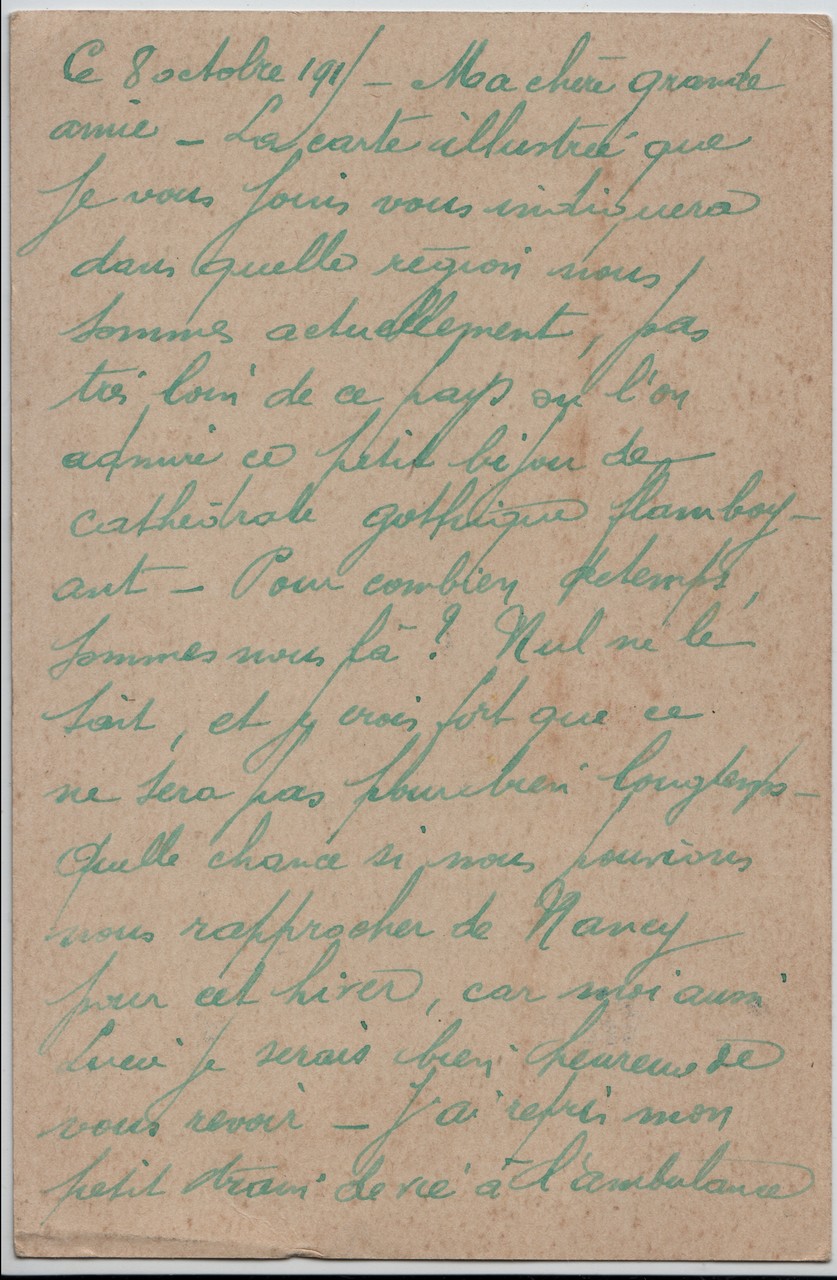 Ce 8 octobre 191/ – Ma chère grande
amie – La carte illustrée que
je vous joins vous indiquera
dans quelle région nous
sommes actuellement, pas
très loin de ce pays ou l'on
admire ce petit bijou de
cathédrale gothique flamboy–
ant – Pour combien de temps,
sommes nous là ? Nul ne le
sait, et j'y crois fort que ce
ne sera pas pour bien longtemps –
Quelle chance si nous pouvions
nous rapprocher de Nancy
pour cet hiver, car moi aussi
Lucie je serais bien heureuse de
vous revoir – J'ai repris mon
petit train de vie à l'ambulance